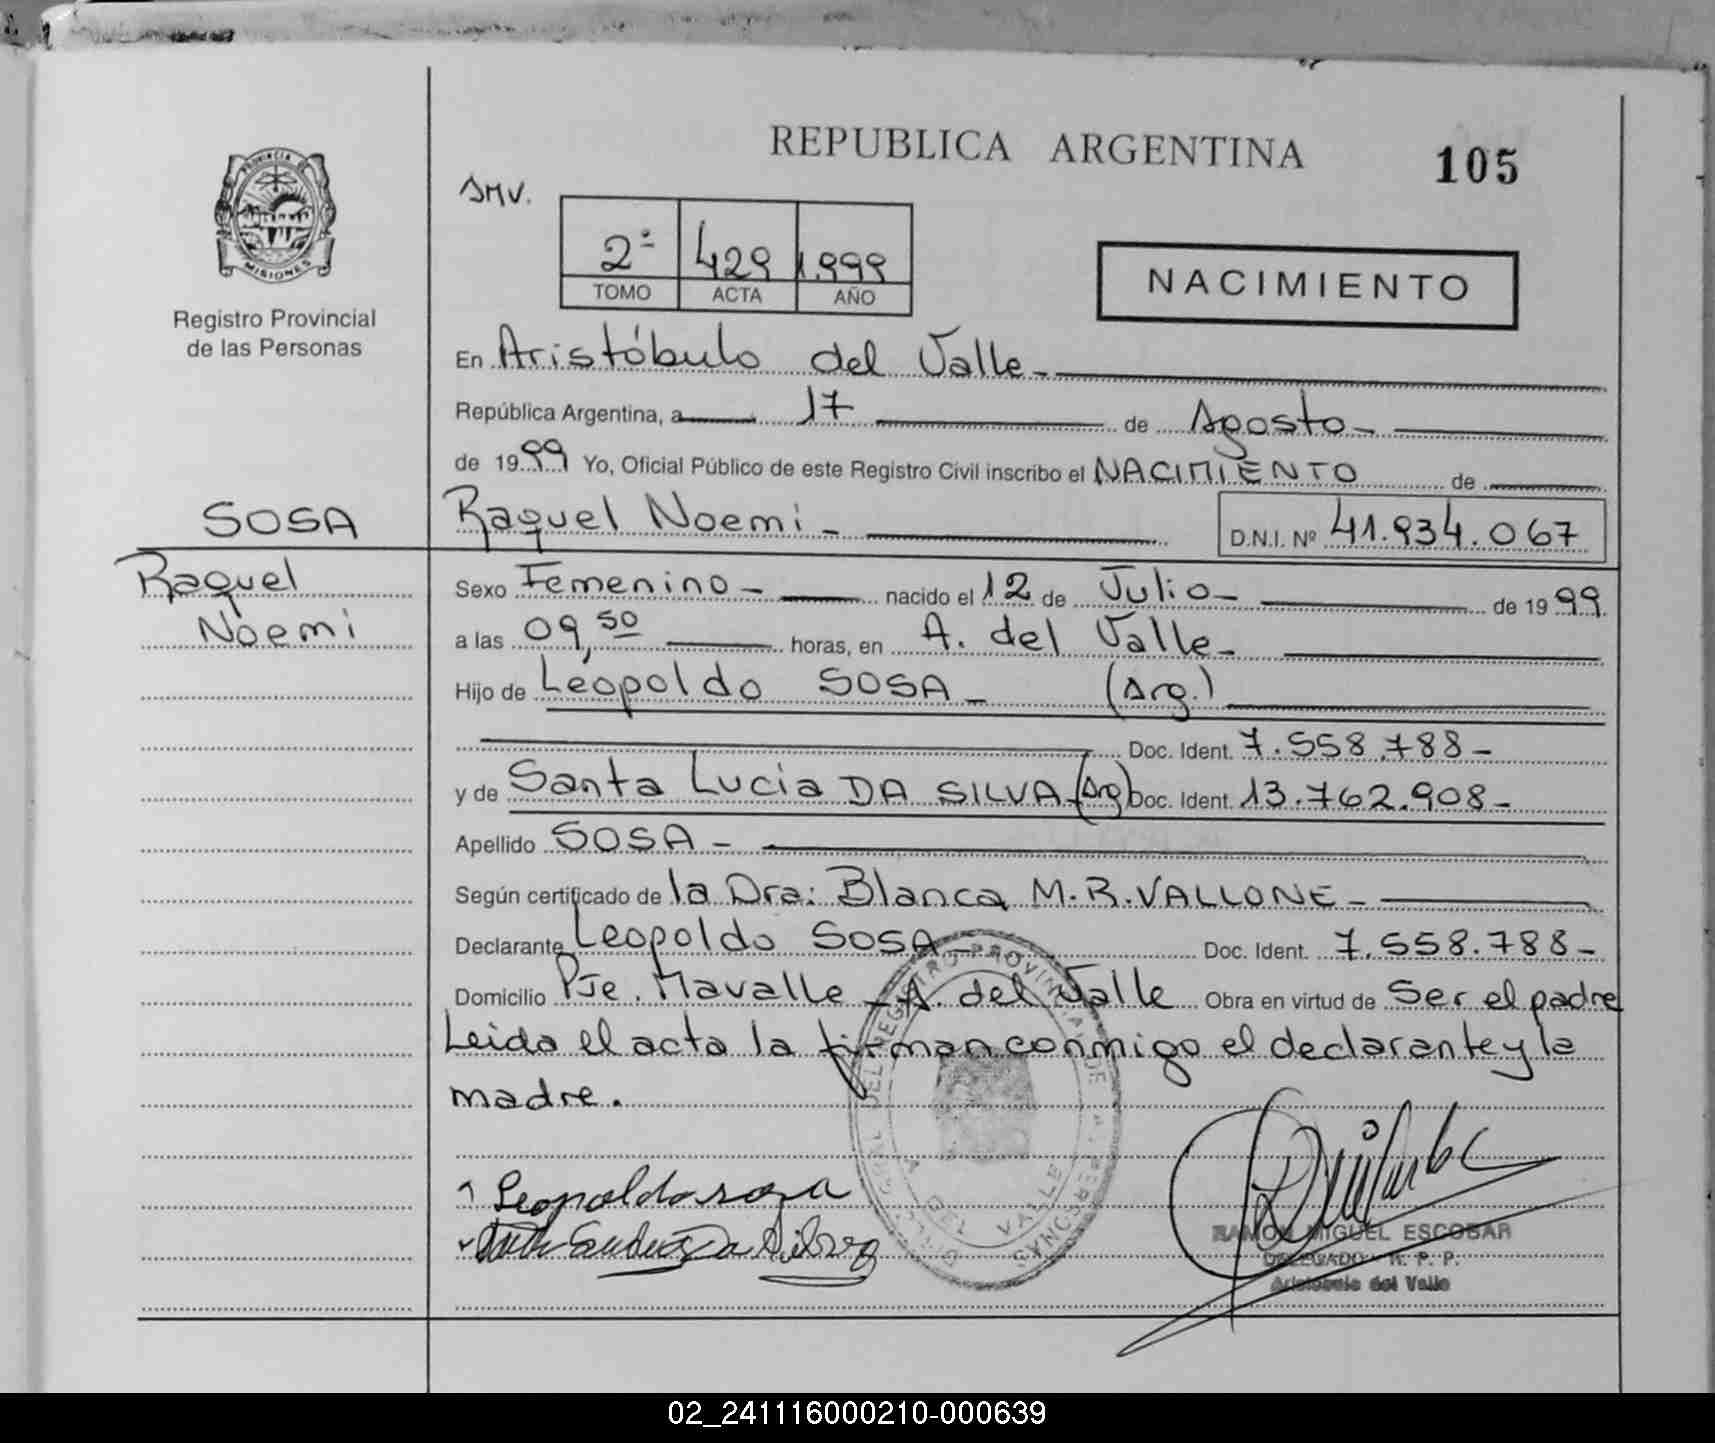 REPUBLICA ARGENTINA
105
PROVINCIA DE
MISIONES
Registro Provincial
de las Personas
SMV.
2ª 429 1.999
TOMO ACTA AÑO
NACIMIENTO
En Aristóbulo del Valle-
República Argentina, a 17 de Agosto-
de 1999 Yo, Oficial Público de este Registro Civil inscribo el NACIMIENTO de
SOSA
Raquel Noemi
Raquel Noemi-
D.N.I. Nº 41.934.067
Sexo Femenino- nacido el 12 de Julio- de 1999
a las 09,50 horas, en A. del Valle-
Hijo de Leopoldo SOSA- (Arg.)
Doc. Ident. 7.558.788-
y de Santa Lucia DA SILVA-(Arg) Doc. Ident. 13.762.908-
Apellido SOSA-
Según certificado de la Dra: Blanca M.R.VALLONE-
Declarante Leopoldo SOSA- Doc. Ident. 7.558.788-
Domicilio Pje. Mavalle-A. del Valle Obra en virtud de Ser el padre
Leida el acta la firman conmigo el declarante y la
madre.
Leopoldo sosa
Da Silva
DEL REGISTRO PROVINCIAL DE LAS PERSONAS
A. DEL VALLE
RAMON MIGUEL ESCOBAR
DELEGADO - R. P. P.
Aristobulo del Valle
02_241116000210-000639